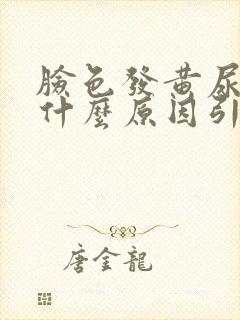 臉色發黃尿
什麼原因引
唐金龍